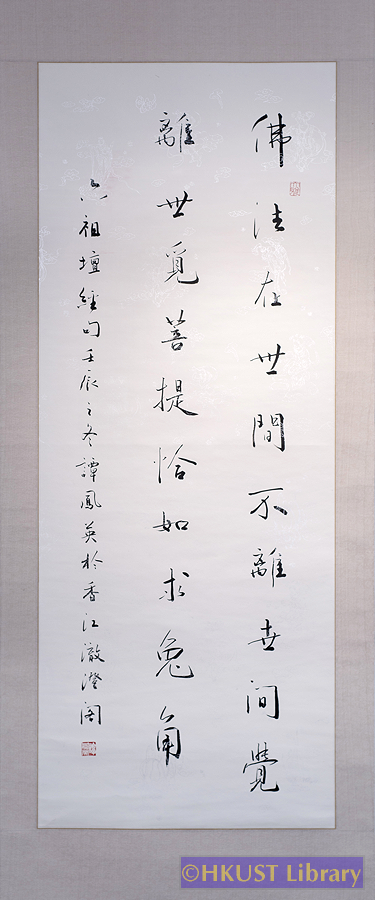 佛法在世間不離世间覺
離世覓菩提恰如求兔角
六祖壇經句壬辰之冬譚鳳英於香江澈澄阁
©HKUST Library